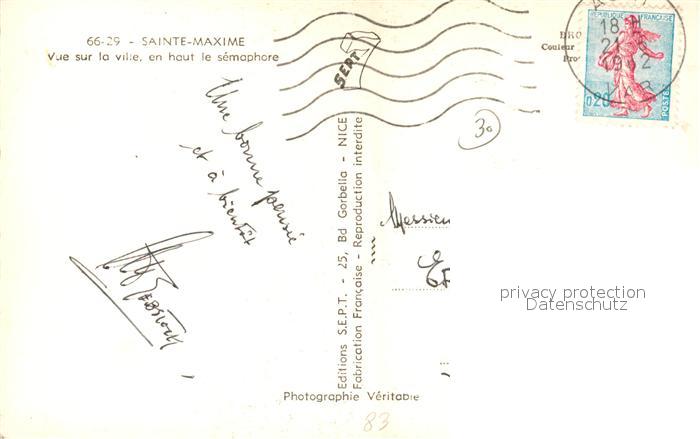 66-29 - SAINTE-MAXIME
Vue sur la ville, en haut le sémaphore
SEPT
BRO
Couleur
Pro
RÉPUBLIQUE FRANÇAISE
0,20
POSTES
18 H
21
1962
VAR
30
Une bonne pensée
et à bientôt
Messieu
Editions S.E.P.T. - 25, Bd Gorbella - NICE
Fabrication Française - Reproduction interdite
privacy protection
Datenschutz
Photographie Véritable
83